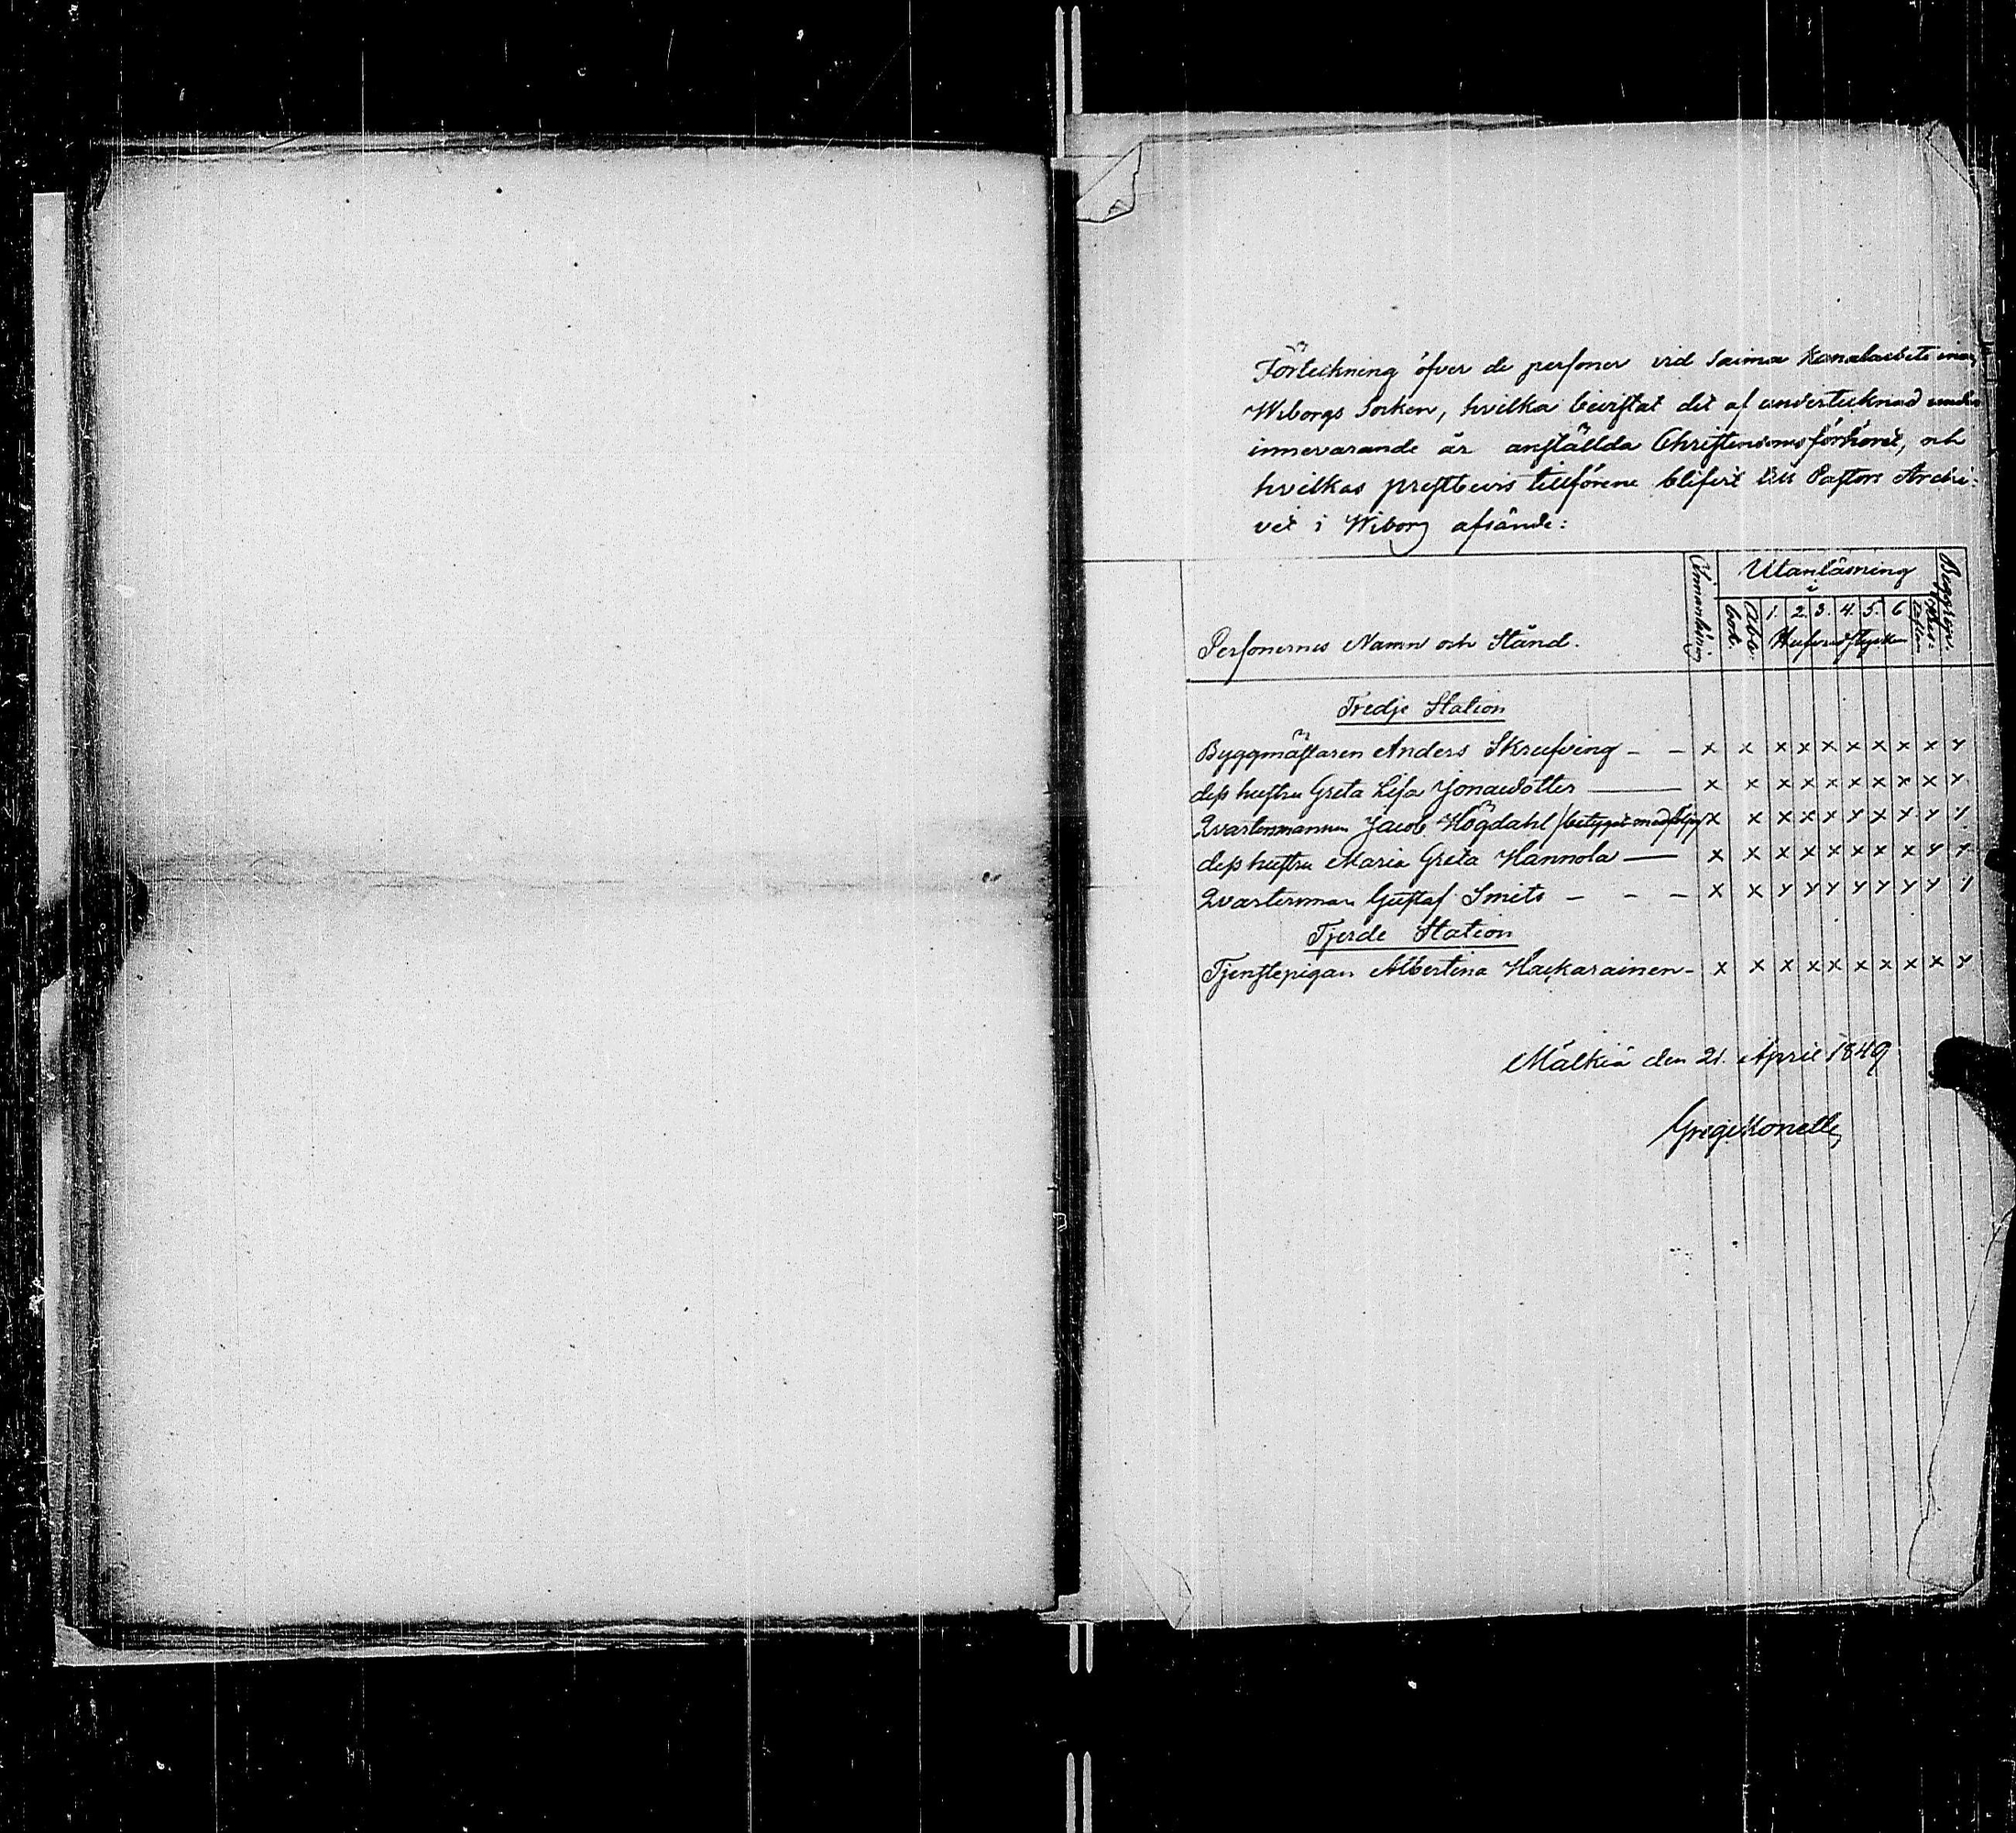 Förteckning öfver de personer vid Saima Kanalarbete inom
Wiborgs Socken, hvilka bevistat det af undertecknad under
innevarande år anställda Christendomsförhöret, och
hvilkas prestbevis tillförene blifvit till Pastors Archi-
vet i Wiborg afsände:
Personernes Namn och Stånd.
Innanläsning
Utanläsning i
Abc-bok.
1. 2. 3. 4. 5. 6
Hufvudstycken
Begrepp
Tredje Station
Byggmästaren Anders Skrufving - - x x x x x x x x x y
dess hustru Greta Lisa Jonaedotter — x x x x x x x x x y
Qvartersmannen Jacob Högdahl /betyget medföljer/ x x x x x y x y y y
dess hustru Maria Greta Hannola — x x x x x x x x y y
Qvartersman Gustaf Smits - - - x x y y y y y y y y
Fjerde Station
Tjenstepigan Albertina Haikarainen - x x x x x x x x x y
Mälkiä den 21. April 1849